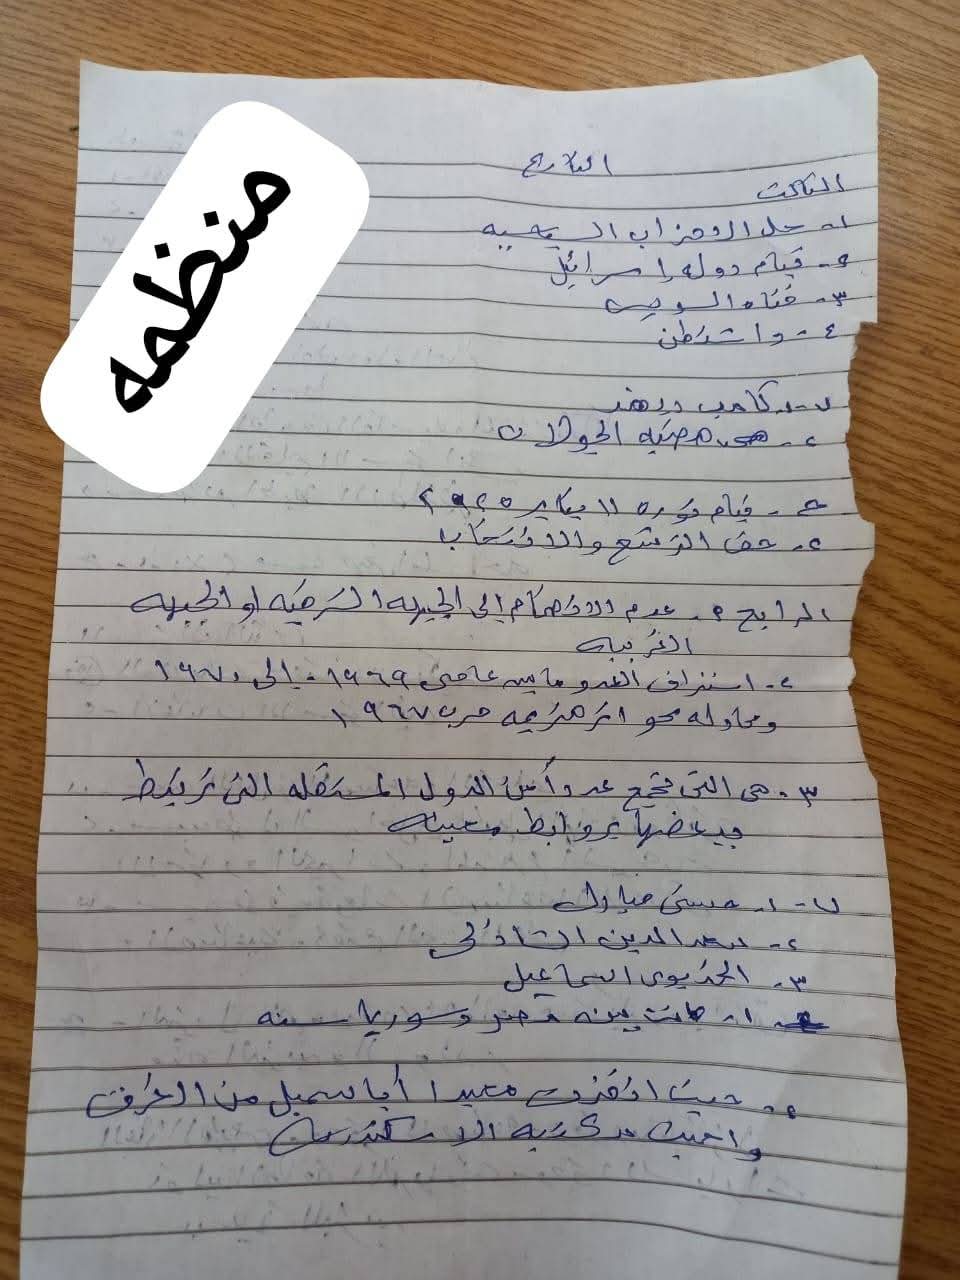 منظمه
التاريخ
الثالث
١- حل الاحزاب السياسيه
٢- قيام دوله إسرائيل
٣- قناه السويس
٤- واشنطن
ب-١- كامب ديفد
٢- هضبه الجولان
ج- قيام ثوره ١١ يناير
٢- حق الترشح والانتخاب
الرابع ٢- عدم الانضمام إلى الجبهه الشرقيه او الجبهه
الغربيه
٢- استنزاف العدو ما بين عامى ١٩٦٩ إلى ١٩٧٠
ومحاوله محو اثر هزيمه حرب ١٩٦٧
٣- هى التى تجمع عددا من الدول المستقله التى تربط
ببعضها روابط معينه
ب- ١- حسنى مبارك
٢- سعد الدين الشاذلى
٣- الخديوى اسماعيل
١- كانت بين مصر وسوريا سنه
٢- حيث انقذوت معبد أبا سمبل من الغرق
واحيت مكتبه الاسكندريه